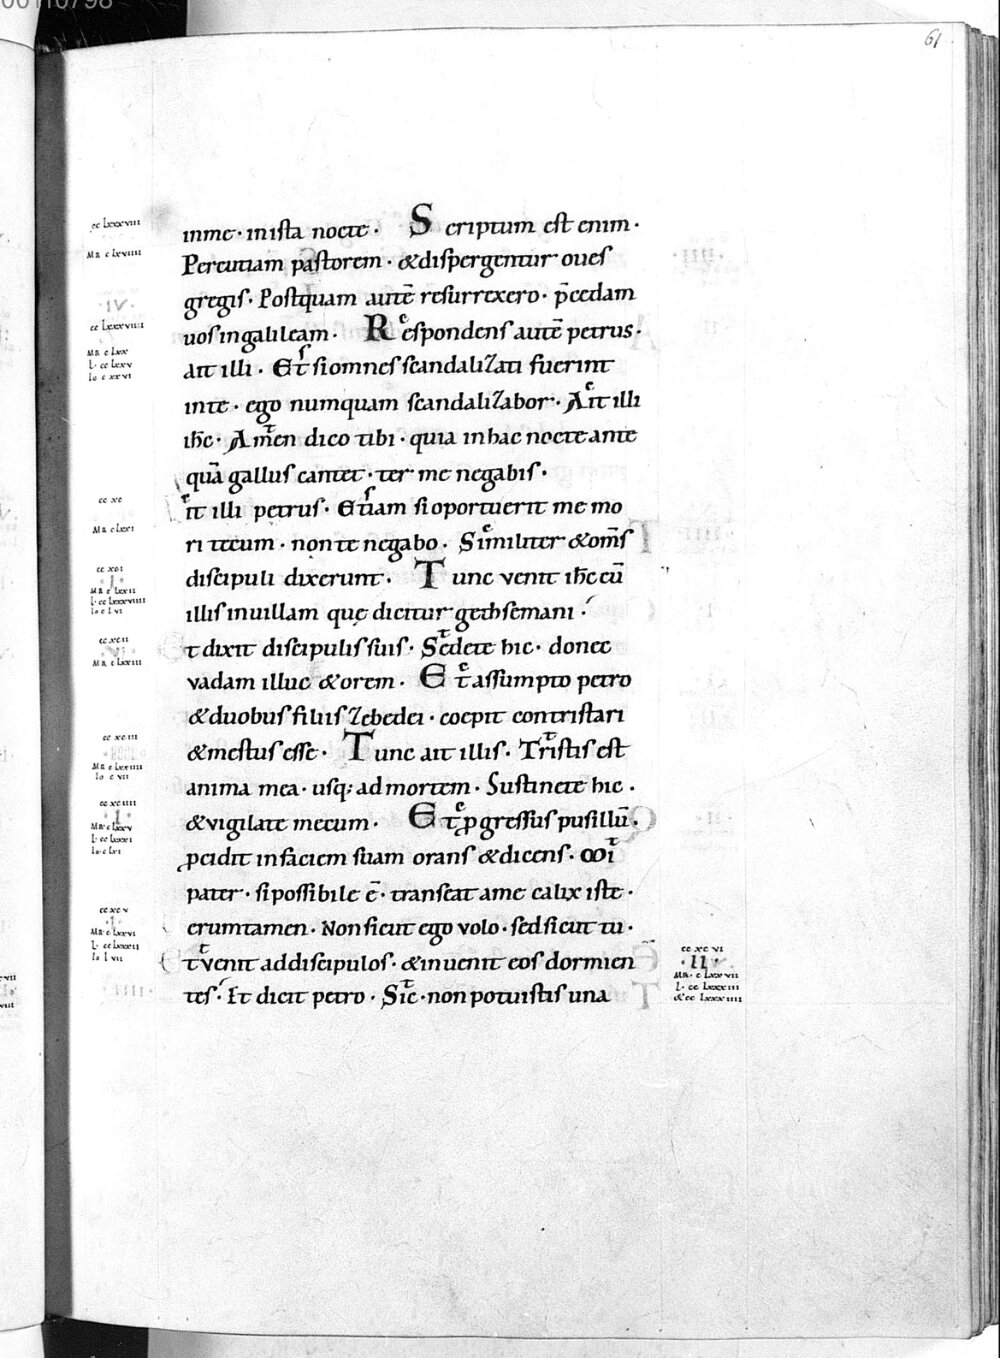 00110798
61
inme · inista nocte · Scriptum est enim ·
Percutiam pastorem · &dispergentur oues
gregis · Postquam autē resurrexero · p̄cedam
uos ingalileam · Respondens autē petrus ·
ait illi · Et si omnes scandalizati fuerint
inte · ego numquam scandalizabor · Ait illi
ihc̄ · Amen dico tibi · quia inhac nocte ante
quā gallus cantet · ter me negabis ·
it illi petrus · Etiam si oportuerit me mo
ri tecum · non te negabo · Similiter &om̄s
discipuli dixerunt · Tunc venit ihc̄ cū
illis inuillam quę dicitur gethsemani ·
t dixit discipulis suis · Sedete hic · donec
vadam illuc &orem · Et assumpto petro
&duobus filiis zebedei · coepit contristari
&mestus esse · Tunc ait illis · Tristis est
anima mea · usq; ad mortem · Sustinete hic ·
&vigilate mecum · Et ꝓgressus pusillū ·
ꝓcidit infaciem suam orans &dicens · Mi
pater · si possibile ē · transeat ame calix iste ·
erumtamen · Non sicut ego volo · sed sicut tu ·
t venit addiscipulos · &inuenit eos dormien
tes · Et dicit petro · Sic · non potuistis una
cc lxxxviii
Mr c lxviiii
cc lxxxviiii
Mr c lxx
L · cc lxxv
Io c xxvi
cc xc
Mr c lxxi
cc xci
Mr c lxxii
L · cc lxxxviiii
Io c lvi
cc xcii
Mr c lxxiii
cc xciii
Mr c lxxiiii
Io c vii
cc xciiii
· I ·
Mr · c lxxv
L · cc lxxxi
Io · c lxi
cc xcv
· I ·
Mr · c lxxvi
L · cc lxxxii
Io l vii
cc xc vi
· II ·
Mr · c lxxvii
L · cc lxxxiii
&cc lxxxiiii